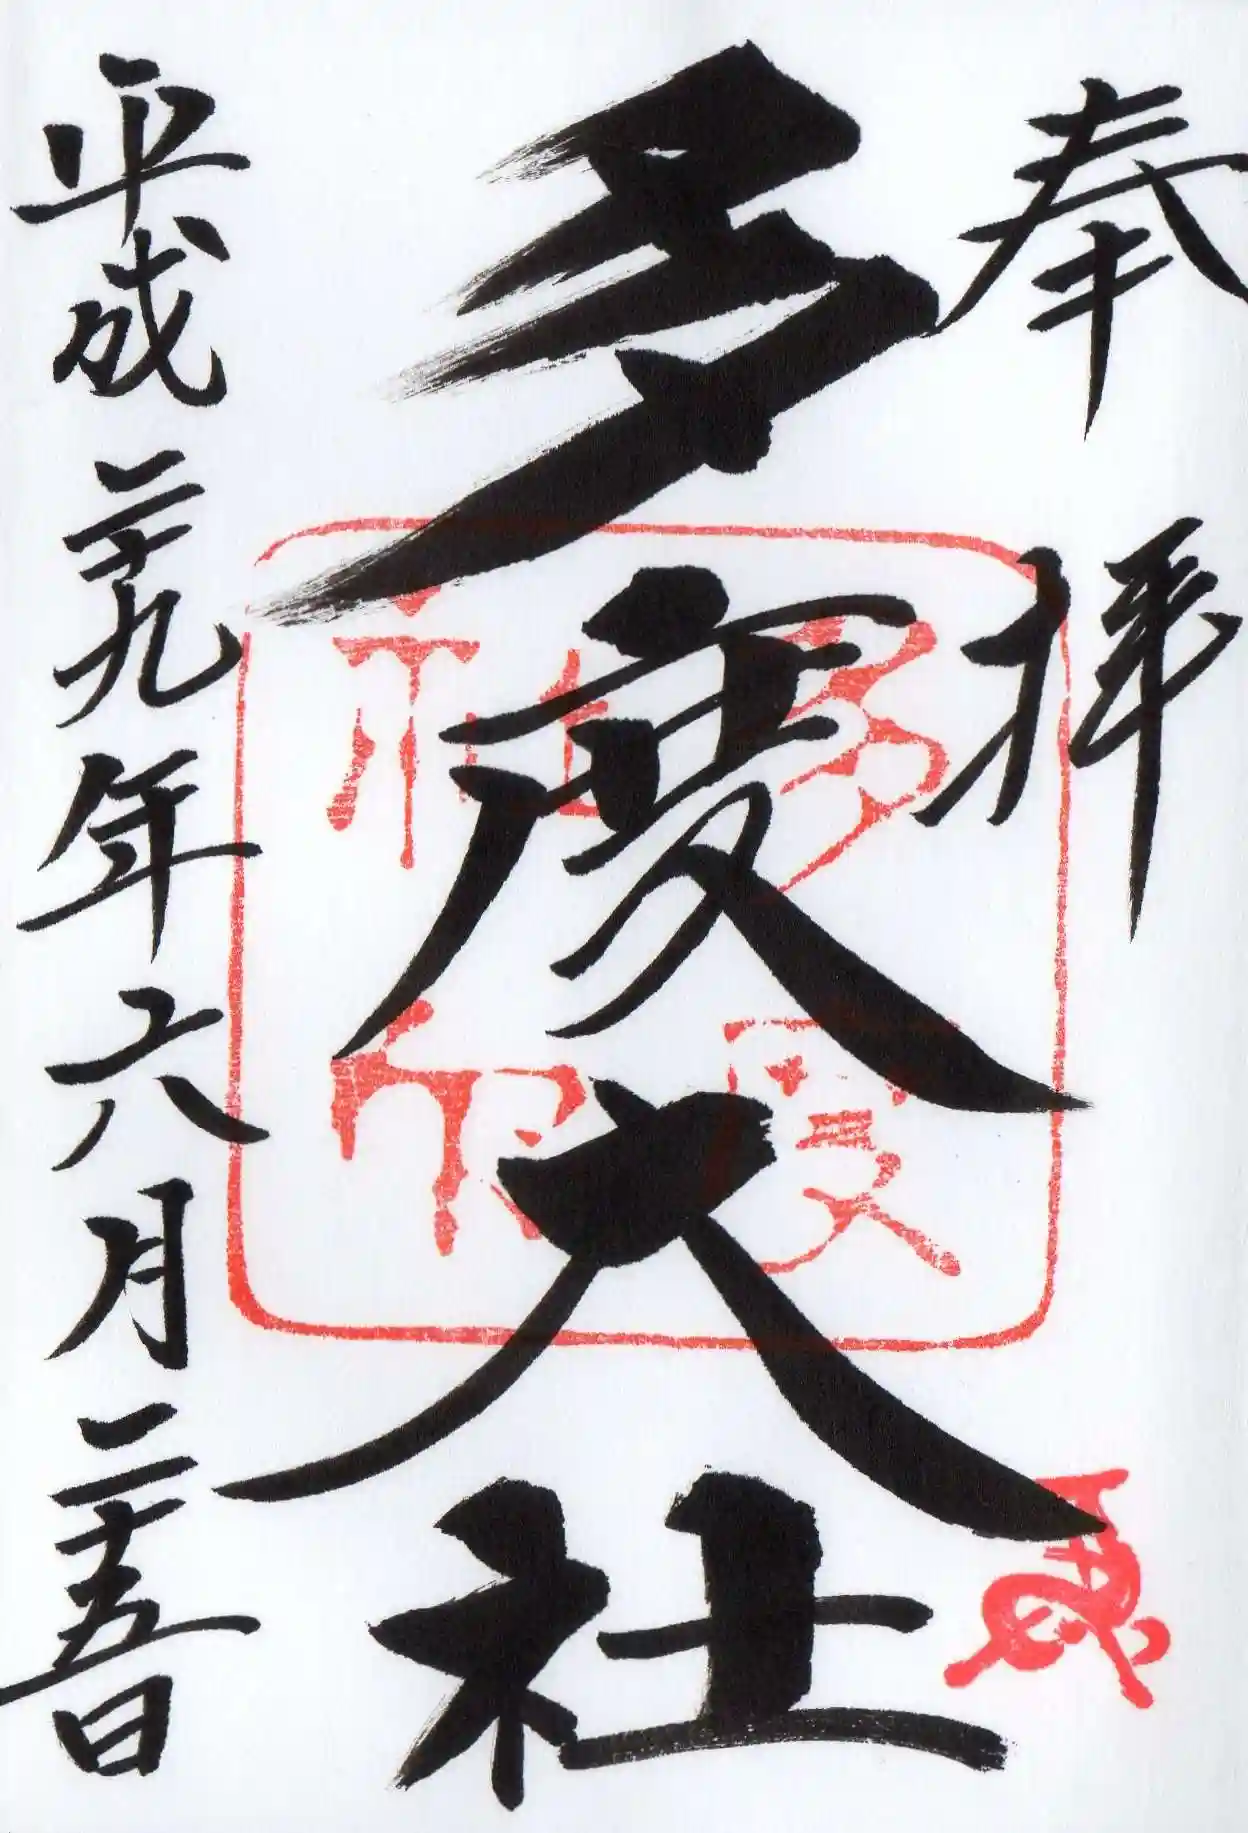 奉拝
多度大社
平成二十九年六月二十五日
多度